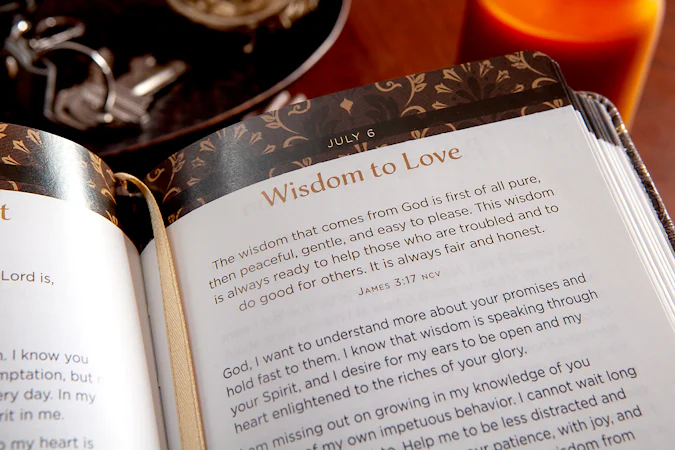 t
Lord is,
n. I know you
mptation, but
ery day. In my
rit in me.
my heart is
JULY 6
Wisdom to Love
The wisdom that comes from God is first of all pure,
then peaceful, gentle, and easy to please. This wisdom
is always ready to help those who are troubled and to
do good for others. It is always fair and honest.
James 3:17 NCV
God, I want to understand more about your promises and
hold fast to them. I know that wisdom is speaking through
your Spirit, and I desire for my ears to be open and my
heart enlightened to the riches of your glory.
am missing out on growing in my knowledge of you
of my own impetuous behavior. I cannot wait long
Help me to be less distracted and
your patience, with joy, and
wisdom from